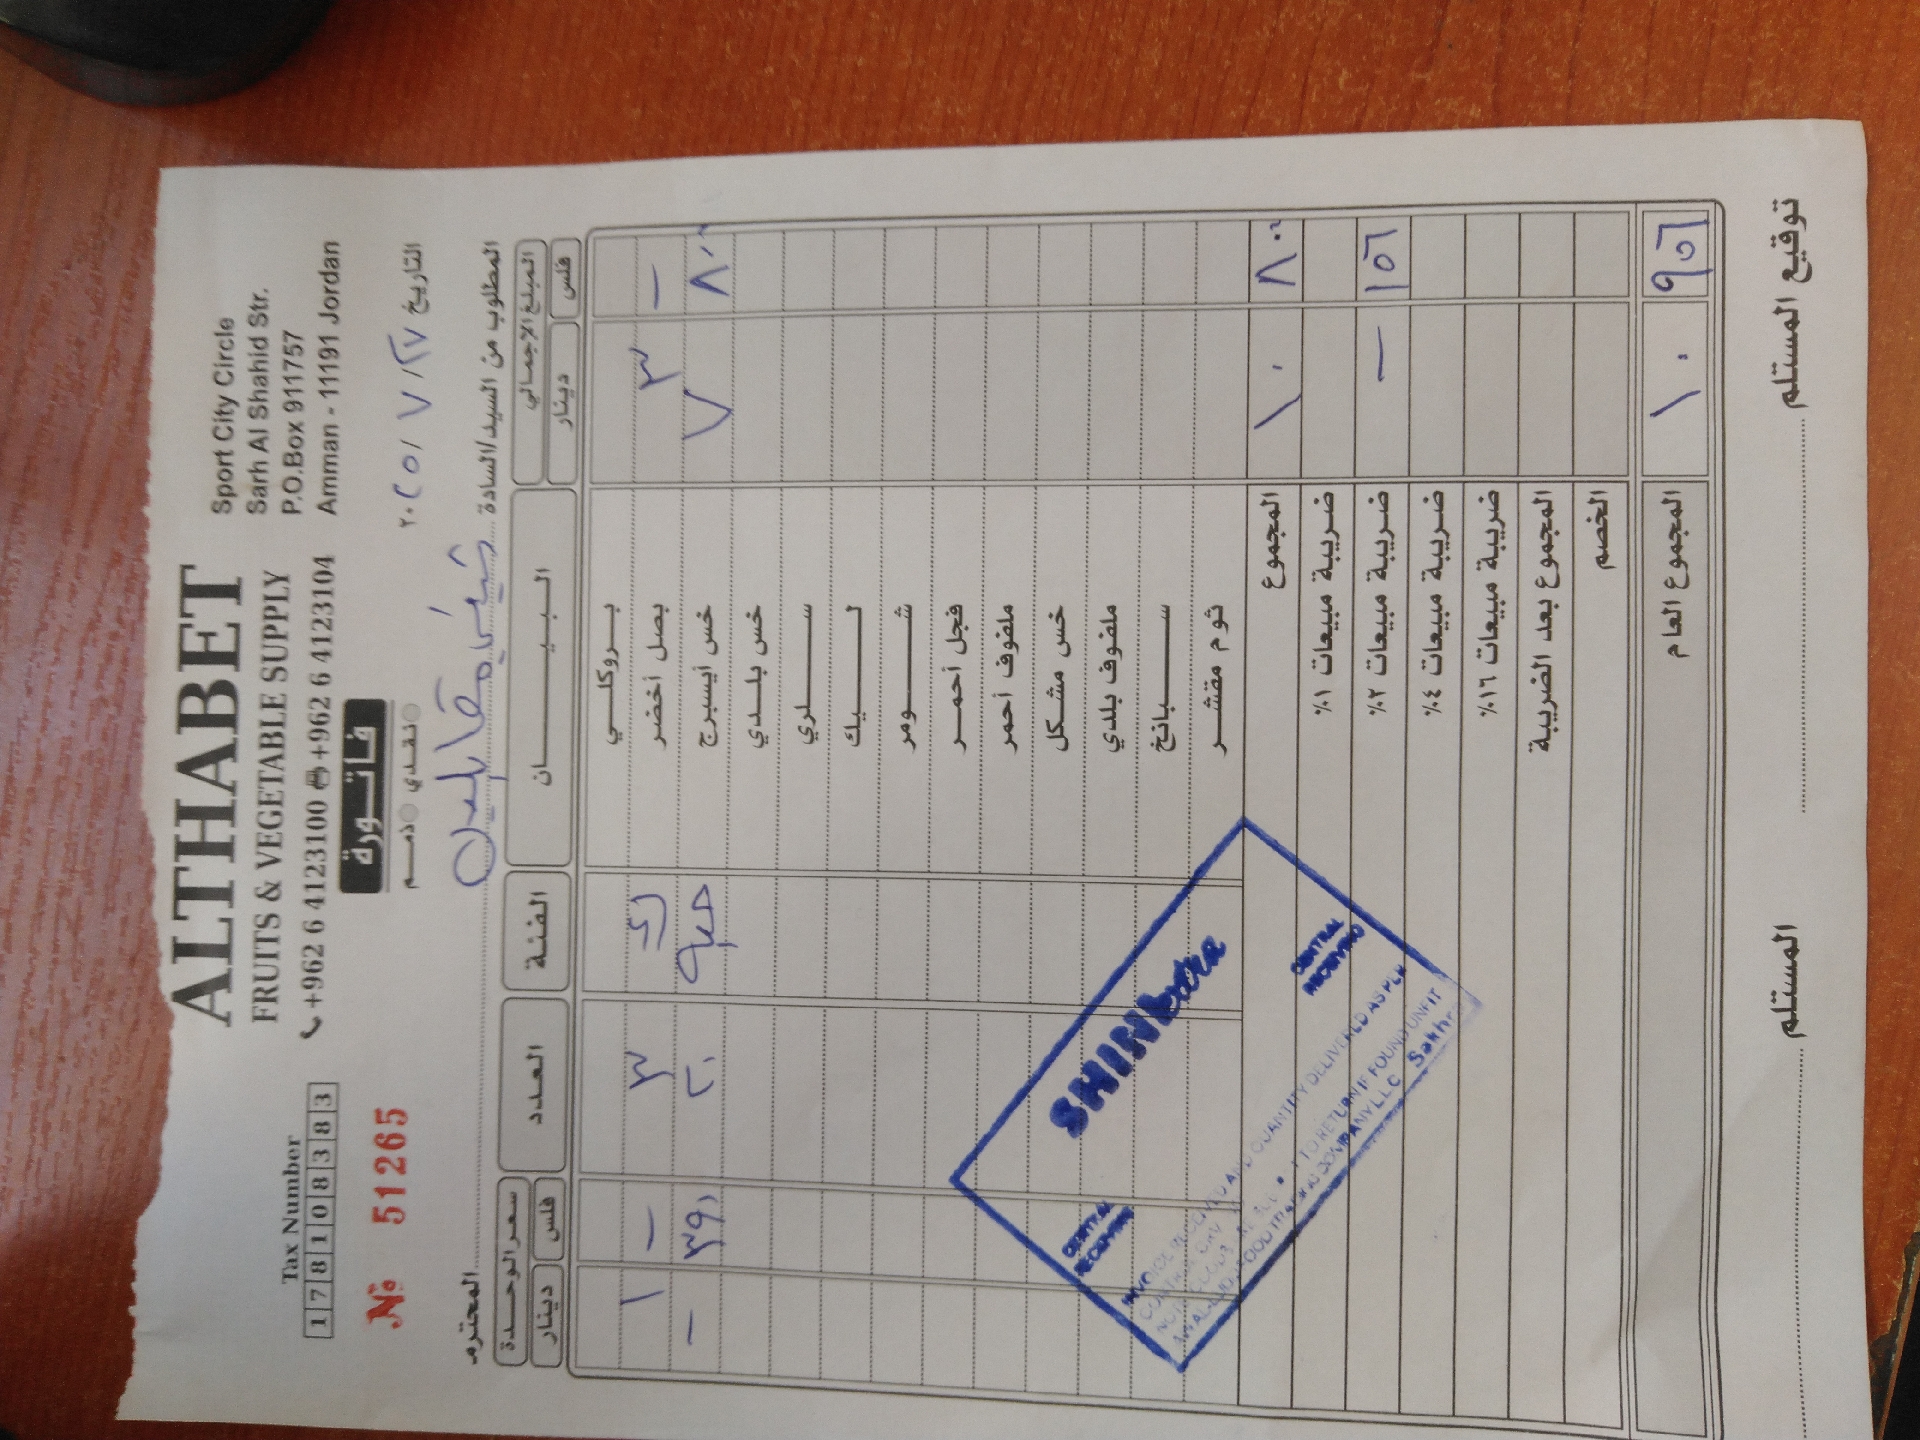 ALTHABET
FRUITS & VEGETABLE SUPPLY
+962 6 4123100 +962 6 4123104
Sport City Circle
Sarh Al Shahid Str.
P.O.Box 911757
Amman - 11191 Jordan
Tax Number
1 7 8 1 0 8 3 8 3
№ 51265
فاتورة
نقدي ذمم
التاريخ ٢٧ / ٧ / ٢٠٢٥
المطلوب من السيد/السادة المحترم
المبلغ الإجمالي البيان الفئة العدد سعر الوحدة
فلس دينار فلس دينار
بروكلي
- ٣ بصل أخضر ٣ - ١
٨٠٠ ٧ خس أيسبرج حبة ٢٠ ٣٩٠ -
خس بلدي
سلري
ليك
شومر
فجل أحمر
ملفوف أحمر
خس مشكل
ملفوف بلدي
سبانخ
ثوم مقشر
٨٠٠ ١٠ المجموع
ضريبة مبيعات ١%
١٥٦ - ضريبة مبيعات ٢%
ضريبة مبيعات ٤%
ضريبة مبيعات ١٦%
المجموع بعد الضريبة
الخصم
٩٥٦ ١٠ المجموع العام
توقيع المستلم المستلم
CENTRAL RECEIVING
CENTRAL RECEIVING
QUANTITY DELIVERED AS PER
TO RETURN IF FOUND UNFIT
COMPANY LLC Sakhr